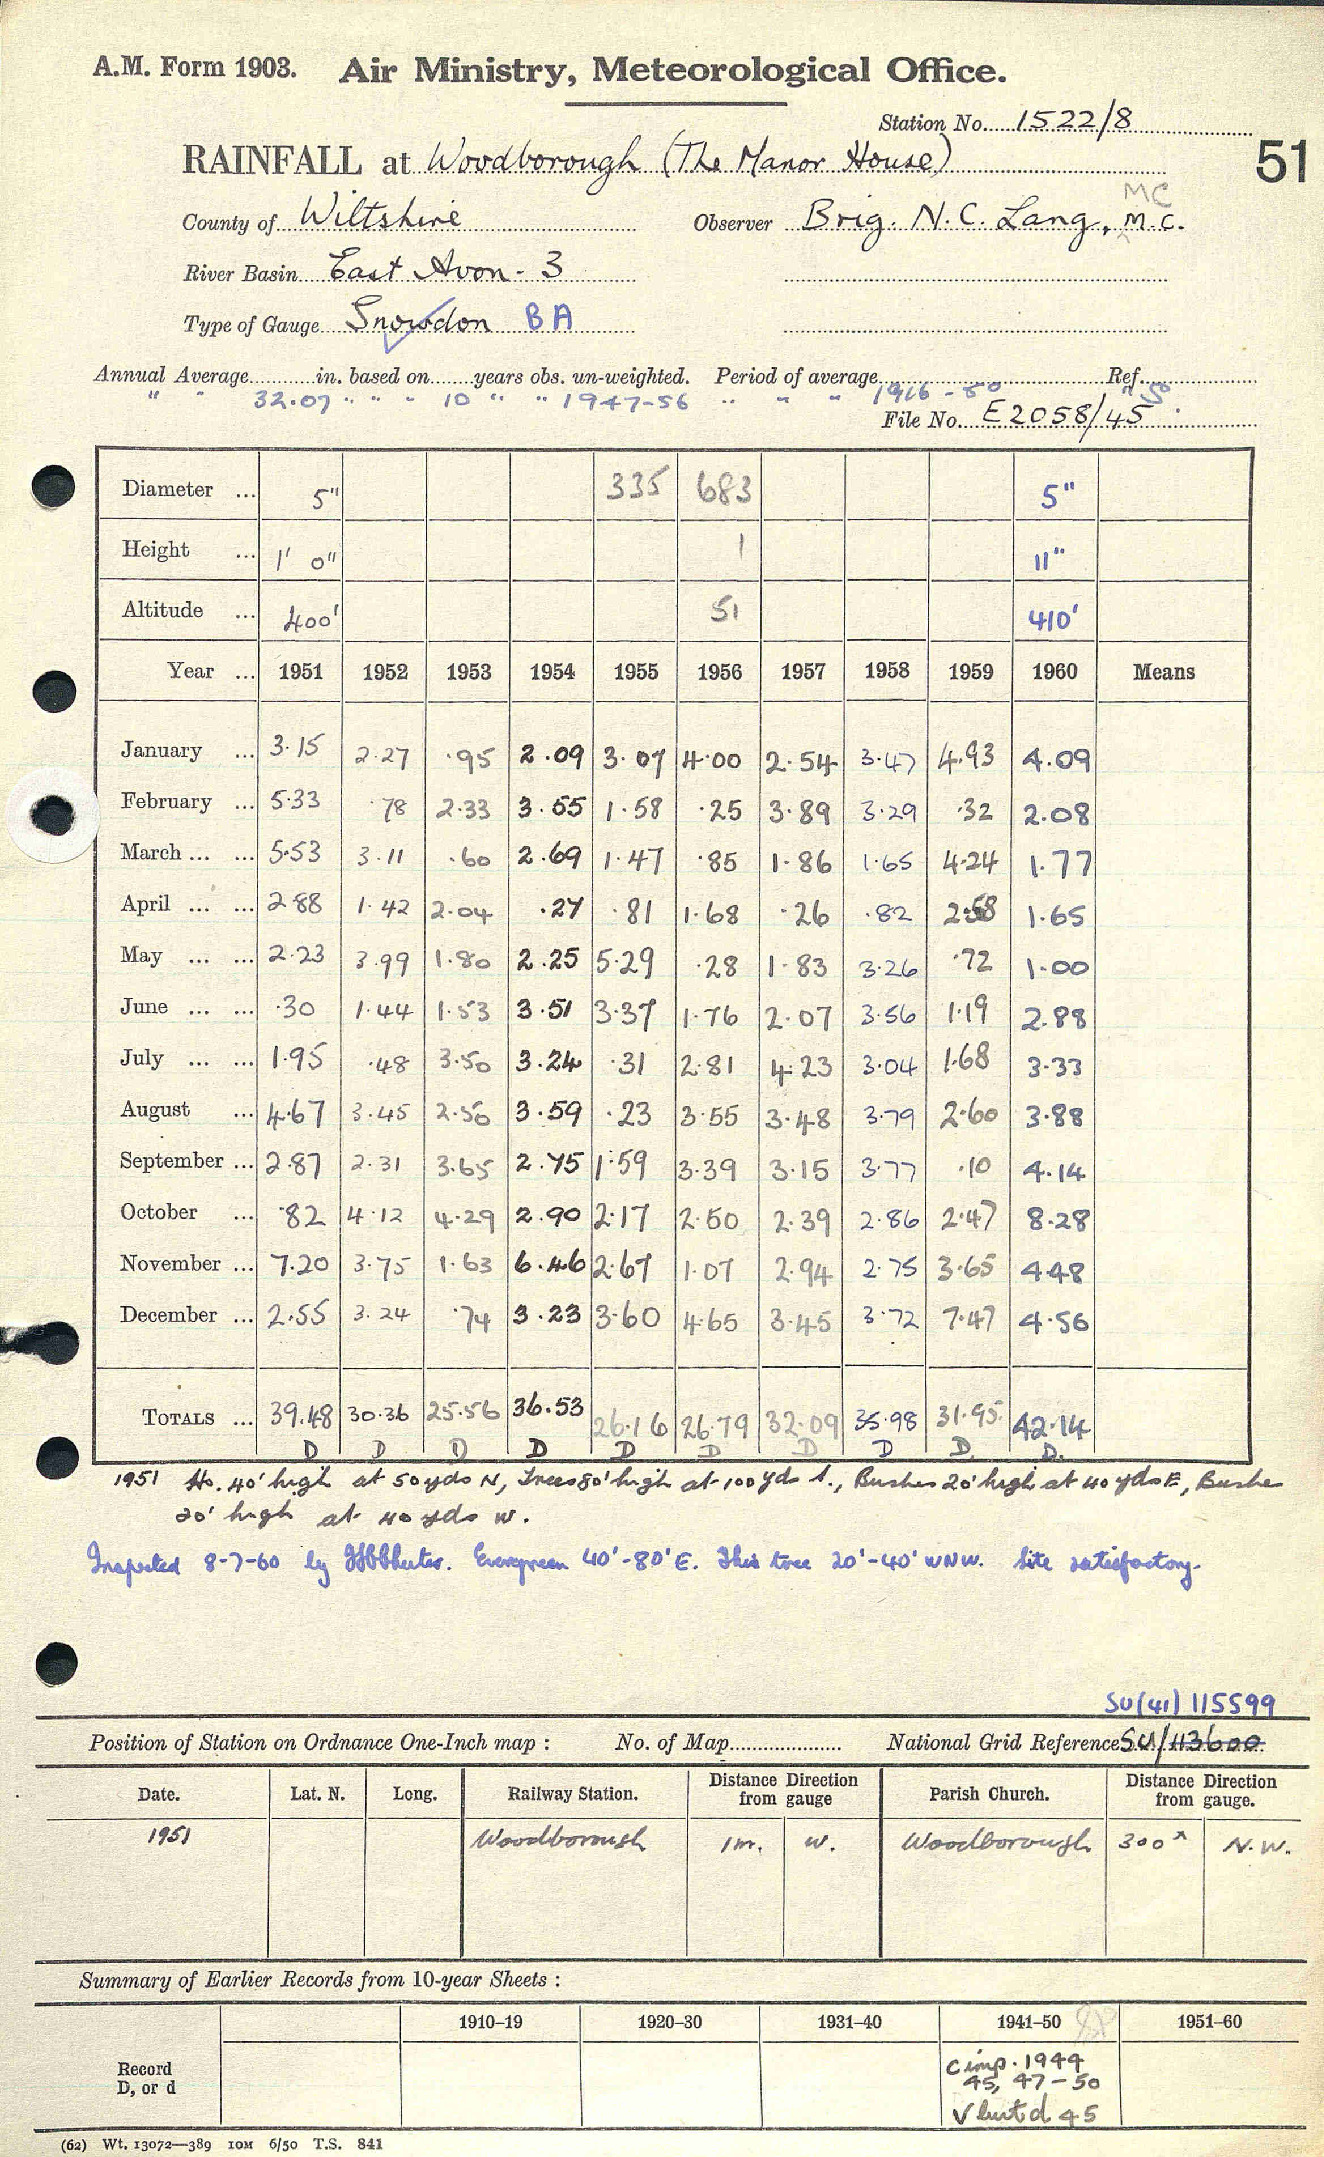 A.M. Form 1903. Air Ministry, Meteorological Office.
Station No. 1522/8
RAINFALL at Woodborough (The Manor House)
51
MC
County of Wiltshire Observer Brig. N.C. Lang, M.C.
River Basin East Avon - 3
Type of Gauge Snowdon BA
Annual Average in. based on years obs. un-weighted. Period of average Ref.
" " 32.07 " " " 10 " " " 1947-56 " " " 1916-50 " 50
File No. E2058/45
Diameter ... 5" 335 683 5"
Height ... 1' 0" 1 11"
Altitude ... 400' 51 410'
Year ... 1951 1952 1953 1954 1955 1956 1957 1958 1959 1960 Means
January ... 3.15 2.27 .95 2.09 3.07 4.00 2.54 3.47 4.93 4.09
February ... 5.33 .78 2.33 3.55 1.58 .25 3.89 3.29 .32 2.08
March ... ... 5.53 3.11 .60 2.69 1.47 .85 1.86 1.65 4.24 1.77
April ... ... 2.88 1.42 2.04 .27 .81 1.68 .26 .82 2.58 1.65
May ... ... 2.23 3.99 1.80 2.25 5.29 .28 1.83 3.26 .72 1.00
June ... ... .30 1.44 1.53 3.51 3.37 1.76 2.07 3.56 1.19 2.88
July ... ... 1.95 .48 3.50 3.24 .31 2.81 4.23 3.04 1.68 3.33
August ... 4.67 3.45 2.50 3.59 .23 3.55 3.48 3.79 2.60 3.88
September ... 2.87 2.31 3.65 2.75 1.59 3.39 3.15 3.77 .10 4.14
October ... .82 4.12 4.29 2.90 2.17 2.50 2.39 2.86 2.47 8.28
November ... 7.20 3.75 1.63 6.46 2.67 1.07 2.94 2.75 3.65 4.48
December ... 2.55 3.24 .74 3.23 3.60 4.65 3.45 3.72 7.47 4.56
TOTALS ... 39.48 30.36 25.56 36.53 26.16 26.79 32.09 35.98 31.95 42.14
D D D D D D D D D D
1951 Ho. 40' high at 50 yds N, Trees 80' high at 100 yds S., Bushes 20' high at 40 yds E, Bushes
20' high at 40 yds W.
Inspected 8-7-60 by Evergreen 40'-80' E. This tree 20'-40' WNW. Site satisfactory.
SU(41) 115599
Position of Station on Ordnance One-Inch map : No. of Map National Grid Reference SU/113600
Date. Lat. N. Long. Railway Station. Distance from gauge Direction Parish Church. Distance from gauge. Direction
1951 Woodborough 1m. W. Woodborough 300ˣ N.W.
Summary of Earlier Records from 10-year Sheets :
1910-19 1920-30 1931-40 1941-50 1951-60
Record
D, or d
Comp. 1944
45, 47-50
V but d 45
(62) Wt. 13072—389 10M 6/50 T.S. 841